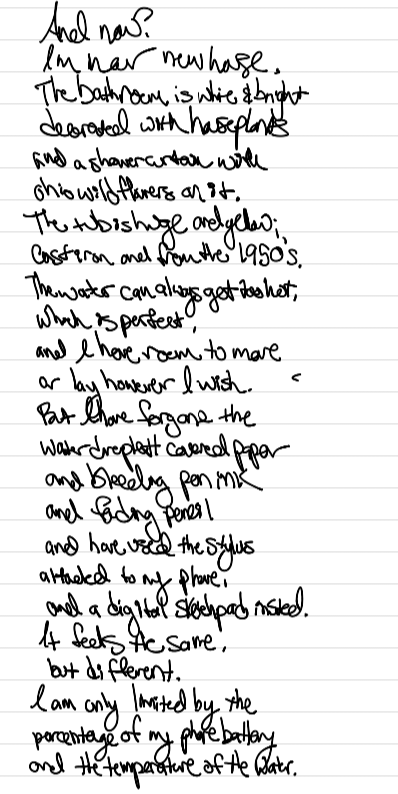 And now?
In our new house.
The bathroom is white & bright
decorated with houseplants
and a shower curtain with
ohio wildflowers on it.
The tub is huge and yellow;
Cast iron and from the 1950's.
The water can always get too hot,
which is perfect,
and I have room to move
or lay however I wish.
But I have forgone the
water dropplett covered paper
and bleeding pen ink
and fading pencil
and have used the stylus
attached to my phone,
and a digital sketchpad instead.
It feels the same,
but different.
I am only limited by the
percentage of my phone battery
and the temperature of the water.